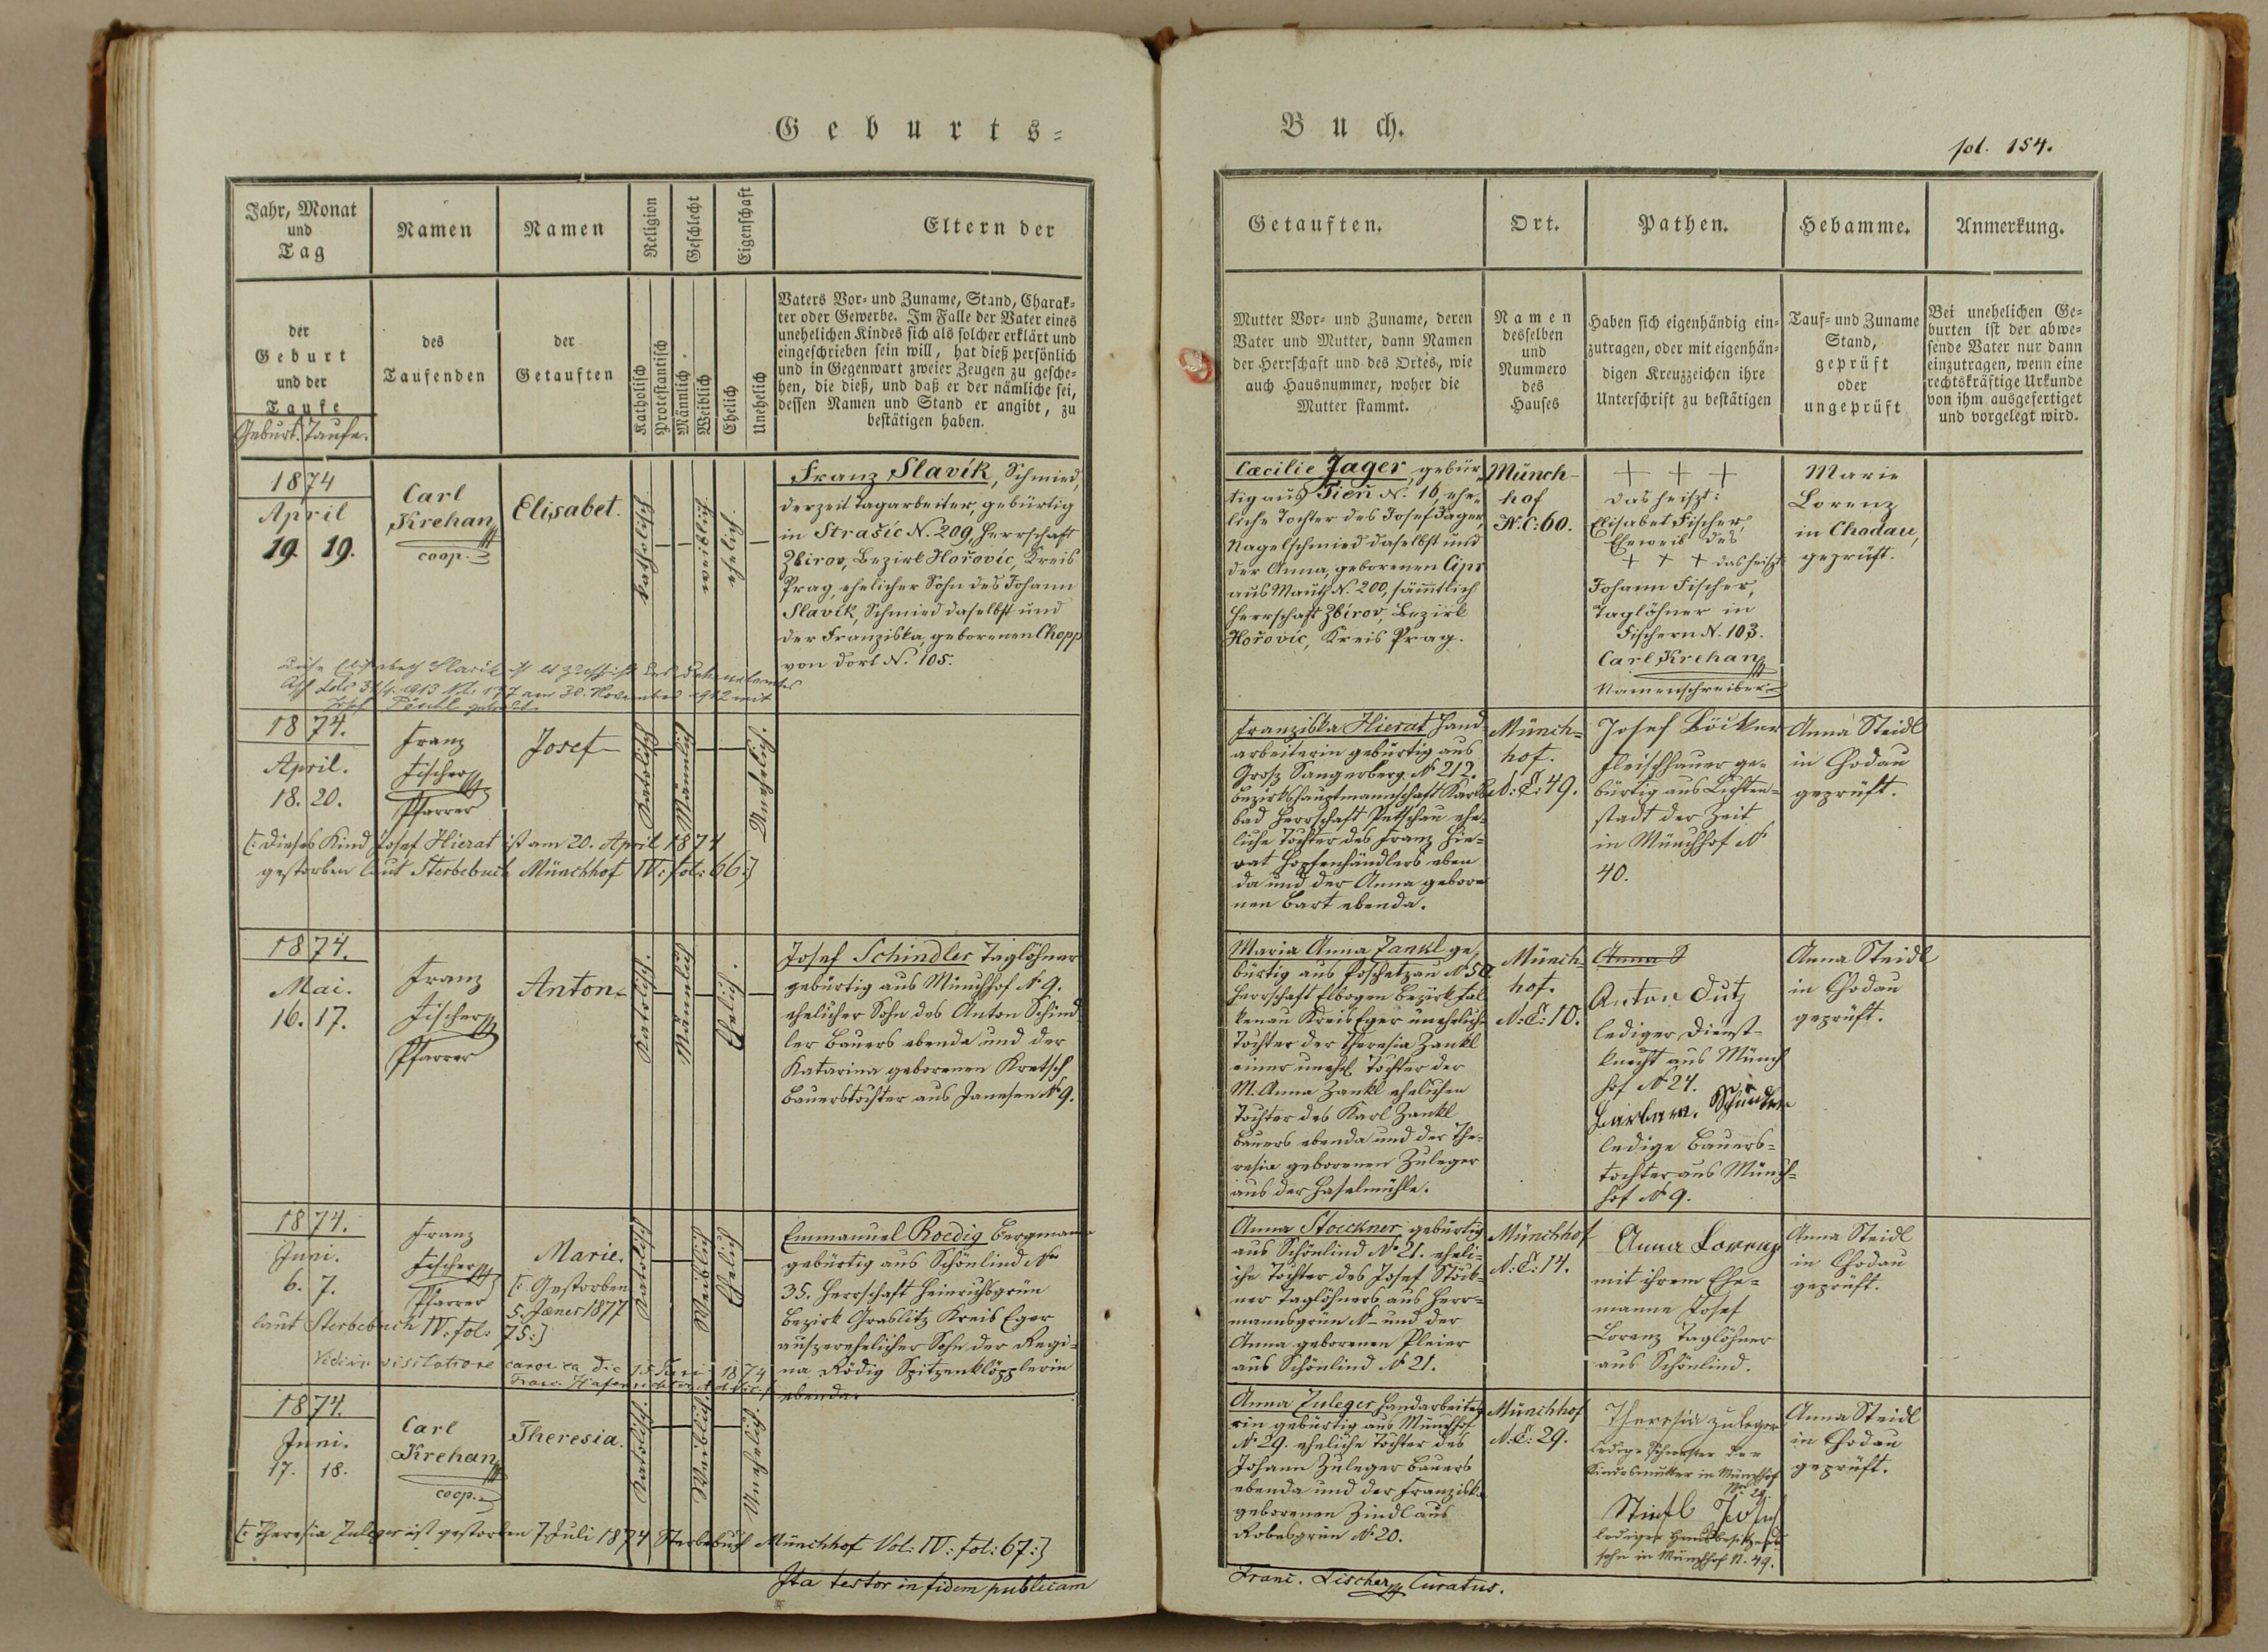 Geburts=
Jahr, Monat
und
Tag
Namen
Namen
Religion
Geschlecht
Eigenschaft
Eltern der
der
Geburt
und der
Taufe
Geburt. Taufe.
des
Taufenden
der
Getauften
Katholisch
Protestantisch
Männlich.
Weiblich
Ehelich
Unehelich
Vaters Vor= und Zuname, Stand, Charak=
ter oder Gewerbe. Im Falle der Vater eines
unehelichen Kindes sich als solcher erklärt und
eingeschrieben sein will, hat dieß persönlich
und in Gegenwart zweier Zeugen zu gesche=
hen, die dieß, und daß er der nämliche sei,
dessen Namen und Stand er angibt, zu
bestätigen haben.
1874
April
19. 19.
Carl
Krehan
coop.
Elisabet.
katholisch.
weiblich.
ehelich.
Franz Slavík, Schmied,
derzeit Tagarbeiter, gebürtig
in Strašic N. 209, Herrschaft
Zbirov, Bezirk Hořovic, Kreis
Prag, ehelicher Sohn des Johann
Slavík, Schmied daselbst und
der Franziska, geborenen Chopp
von dort N. 105.
1874.
April.
18. 20.
Franz
Fischer
Pfarrer
Josef
Katolisch
Männlich
Unehelich.
[: Dieses Kind Josef Hierat ist am 20. April 1874
gestorben laut Sterbebuch Münchhof IV: fol: 66:]
1874.
Mai.
16. 17.
Franz
Fischer
Pfarrer
Anton
Katolisch.
Männlich
Ehelich.
Josef Schindler Taglöhner
gebürtig aus Münchhof N 9.
ehelicher Sohn des Anton Schind
ler Bauers ebenda und der
Katarina geborenen Kretsch
Bauerstochter aus Janesen N 9.
1874.
Juni.
6. 7.
Franz
Fischer
Pfarrer
Marie.
[: Gestorben
5. Jäner 1877
laut Sterbebuch IV: fol: 75:]
Katolisch
Weiblich
Ehelich
Emmanuel Roedig Bergmann
gebürtig aus Schönlind N
35. Herrschaft Heinrichsgrün
Bezirk Graslitz Kreis Eger
auszerehelicher Sohn der Regi=
na Rödig Spitzenklöpplerin
ebenda.
Vidi in visitatione canonica die 15 Juni 1874
1874.
Juni.
17. 18.
Carl
Krehan
coop.
Theresia.
Katolisch.
Weiblich
Unehelich.
[: Theresia Zuleger ist gestorben 7 Juli 1874 Sterbebuch Münchhof Vol: IV: fol: 67:]
Ita testor in fidem publicam
Buch.
fol. 154.
Getauften.
Ort.
Pathen.
Hebamme.
Anmerkung.
Mutter Vor= und Zuname, deren
Vater und Mutter, dann Namen
der Herrschaft und des Ortes, wie
auch Hausnummer, woher die
Mutter stammt.
Namen
desselben
und
Nummero
des
Hauses
Haben sich eigenhändig ein=
zutragen, oder mit eigenhän=
digen Kreuzzeichen ihre
Unterschrift zu bestätigen
Tauf= und Zuname
Stand,
geprüft
oder
ungeprüft
Bei unehelichen Ge=
burten ist der abwe=
sende Vater nur dann
einzutragen, wenn eine
rechtskräftige Urkunde
von ihm ausgefertiget
und vorgelegt wird.
Cæcilie Jager, gebür
tig aus Tieň N. 16, ehe=
liche Tochter des Josef Jager,
Nagelschmied daselbst und
der Anna, geborenen Cipr
aus Mauth N. 200, sämtlich
Herrschaft Zbirov, Bezirk
Hořovic, Kreis Prag.
Münch-
hof
N.C: 60.
+ + +
das heiszt:
Elisabet Fischer,
Eheweib des
+ + + das heiszt
Johann Fischer,
Taglöhner in
Fischern N. 103.
Carl Krehan
Namenschreiber
Marie
Lorenz
in Chodau,
geprüft.
Franziska Hierat Hand
arbeiterin gebürtig aus
Grosz Sangerberg. N 212.
Bezirkshauptmannschaft Karls
bad Herrschaft Petschau ehe=
liche Tochter des Franz Hie=
rat Hopfenhändlers eben
da und der Anna gebore
nen Bart ebenda.
Münch=
hof.
N: C: 49.
Josef Böcker
Fleischhauer ge=
bürtig aus Lichten=
stadt der Zeit
in Münchhof N
40.
Anna Steidl
in Chodau
geprüft.
Maria Anna Zankl ge=
bürtig aus Poschetzau N 50
Herrschaft Elbogen Bezirk Fal
kenau Kreis Eger uneheliche
Tochter der Theresia Zankl
einer unehel Tochter der
M. Anna Zankl ehelichen
Tochter des Karl Zankl
Bauers ebenda und der The=
resia geborenen Zuleger
aus der Haselmühle.
Münch=
hof.
N: C: 10.
Anna S
Anton Dutz
lediger Dienst=
knecht aus Münch
hof N 24.
Barbara. Schindler
ledige Bauers=
tochter aus Münch=
hof N 9.
Anna Steidl
in Chodau
geprüft.
Anna Stoeckner gebürtig
aus Schönlind N 21. eheli=
che Tochter des Josef Stöck=
ner Taglöhners aus Herr=
mannsgrün N und der
Anna geborenen Pleier
aus Schönlind N 21.
Münchhof
N: C: 14.
Anna Lorenz
mit ihrem Ehe=
manne Josef
Lorenz Taglöhner
aus Schönlind.
Anna Steidl
in Chodau
geprüft.
Anna Zuleger Handarbeite
rin gebürtig aus Münchhof
N 29. eheliche Tochter des
Johann Zuleger Bauers
ebenda und der Franziska
geborenen Zindl aus
Robesgrün N 20.
Münchhof
N: C: 29.
Theresia Zuleger
ledige Schwester der
Kindesmutter in Münchhof
Nr 29.
Josef
lediger Hausbesitzers
sohn in Münchhof N. 49.
Anna Steidl
in Chodau
geprüft.
Franc. Fischer Curatus.